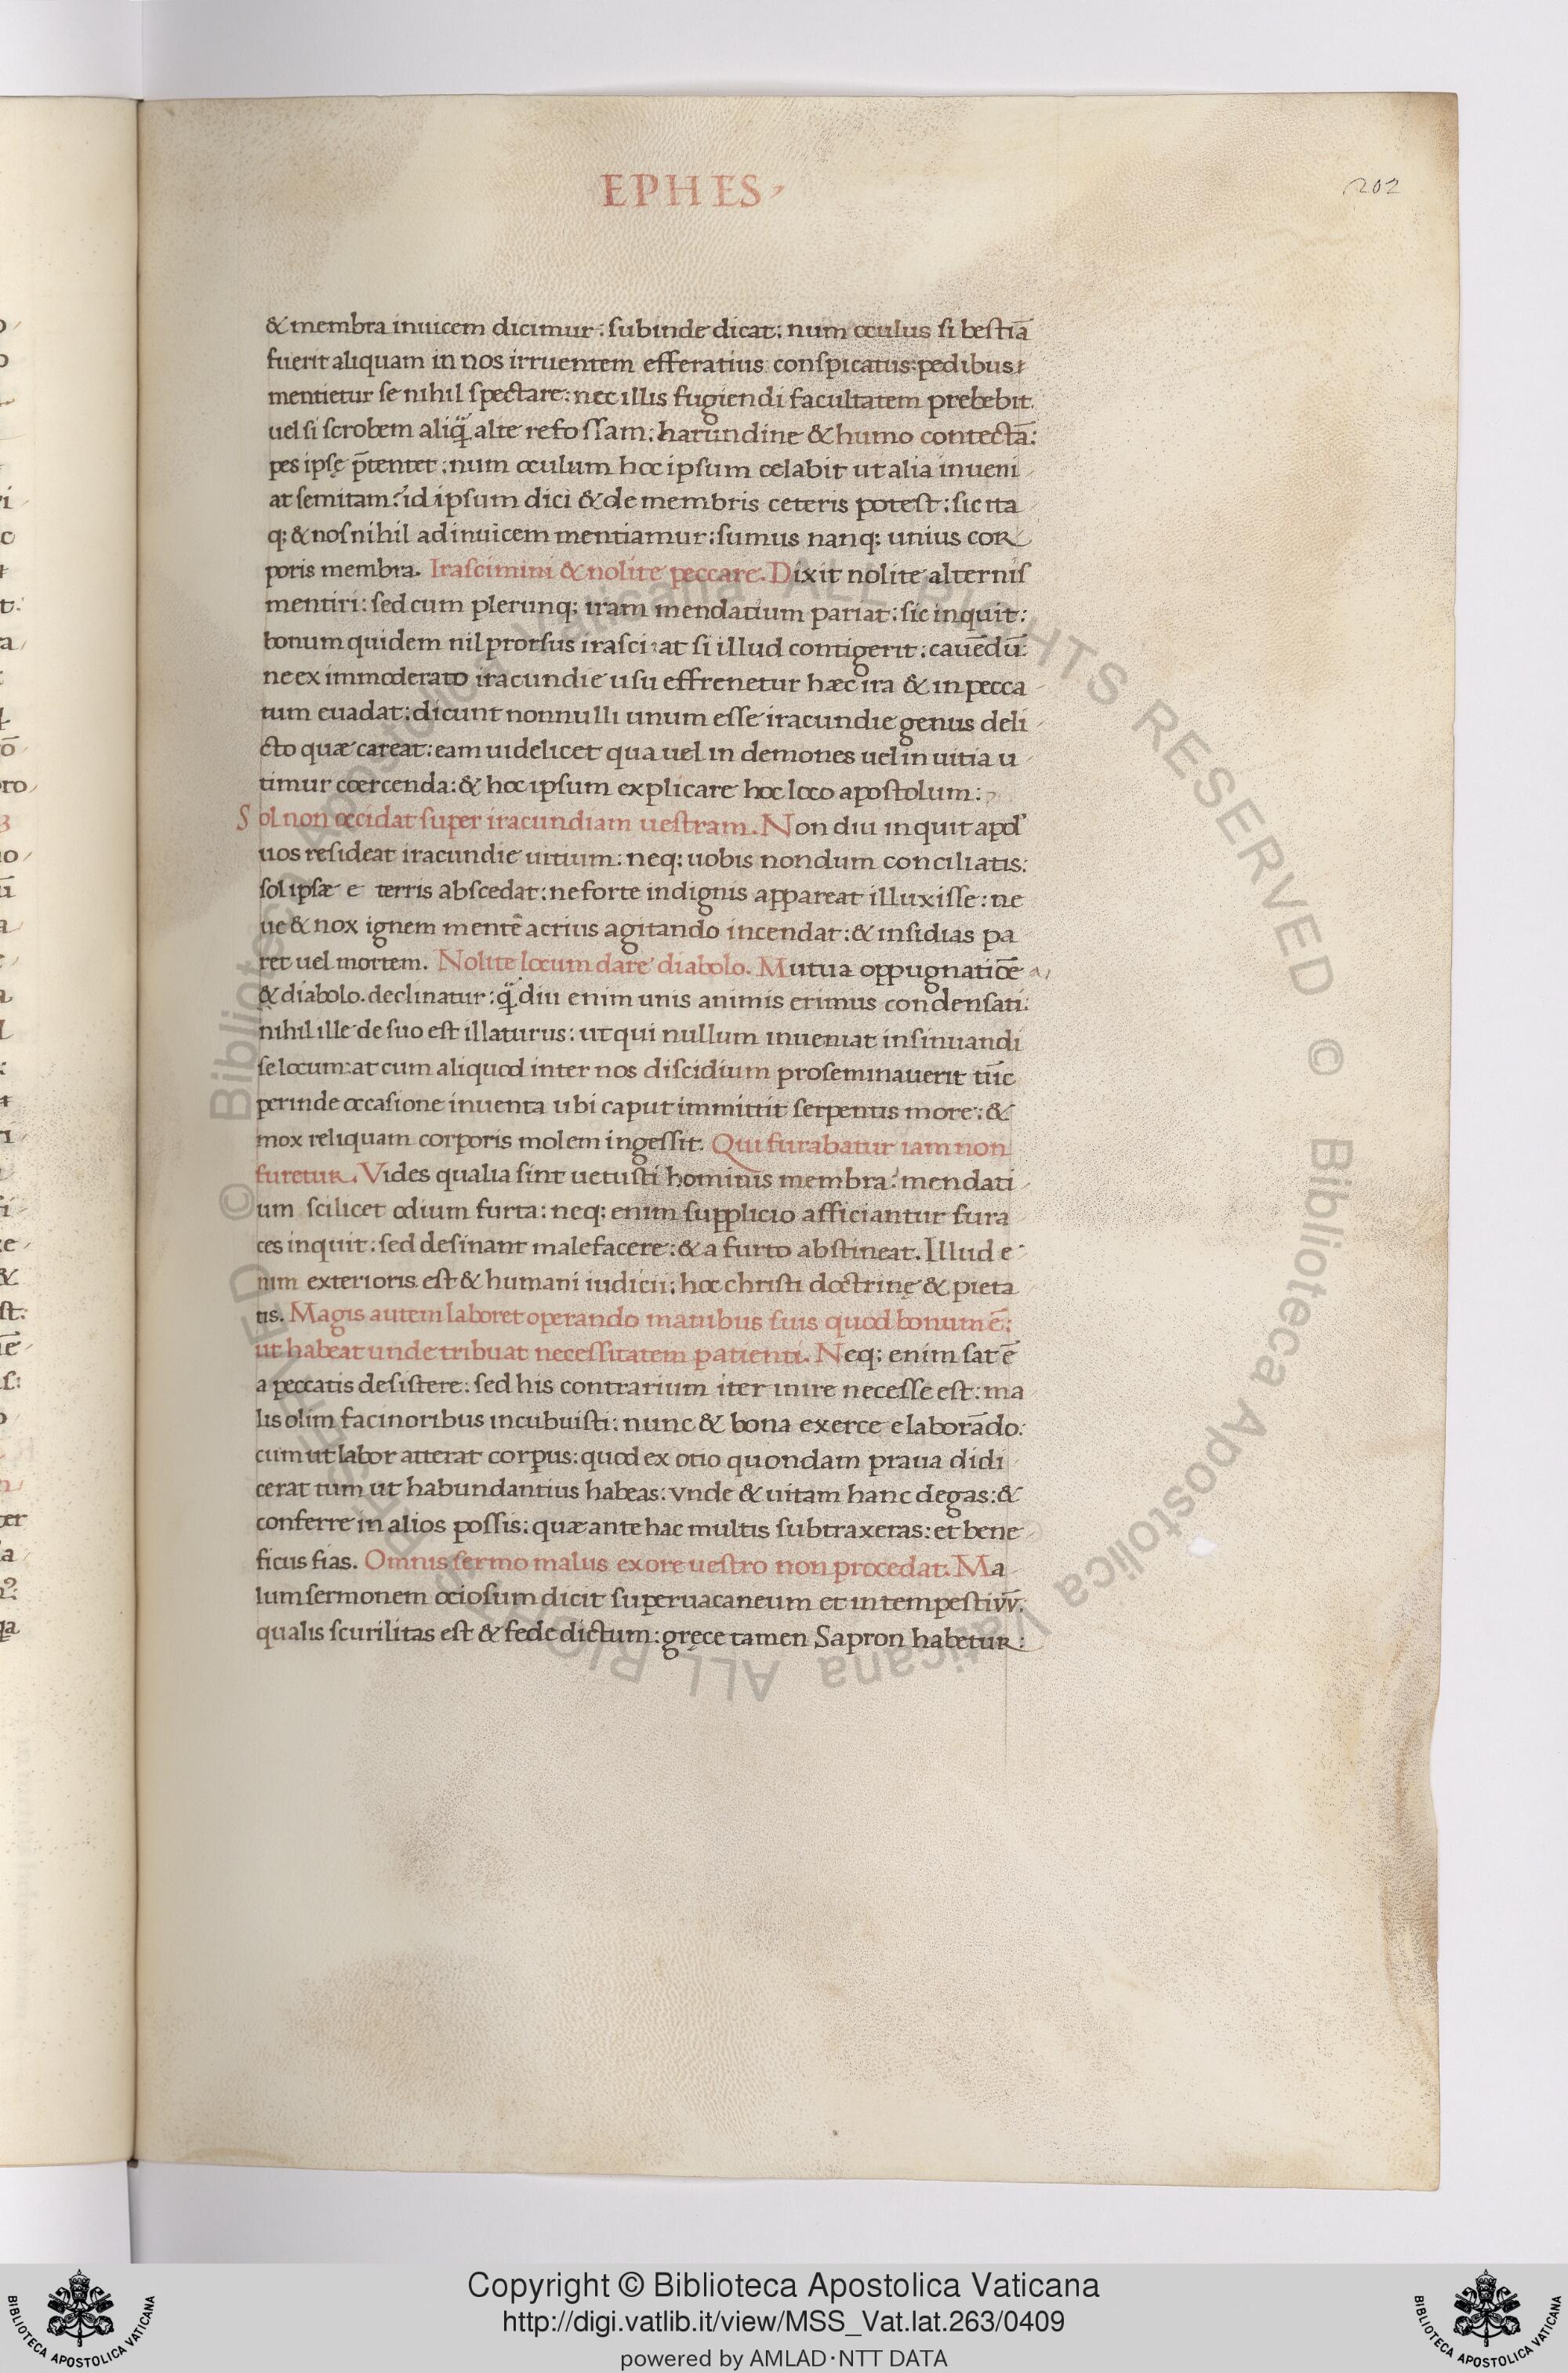 EPHES
202
& membra inuicem dicimur: subinde dicat: num oculus si bestiā
fuerit aliquam in nos irruentem efferatius conspicatus: pedibus
mentietur se nihil spectare: nec illis fugiendi facultatem prebebit.
uel si scrobem aliq̈ alte refossam: harundine & humo contectā:
pes ipsę p̄tentet: num oculum hoc ipsum celabit ut alia inueni
at semitam? id ipsum dici & de membris ceteris potest: sic ita
q: & nos nihil adinuicem mentiamur: sumus nanq: unius cor
poris membra. Irascimini & nolite peccare. Dixit nolite alternis
mentiri: sed cum plerunq: iram mendatium pariat: sic inquit:
bonum quidem nil prorsus irasci: at si illud contigerit: cauēdū:
ne ex immoderato iracundie usu effrenetur hæc ira & in pecca
tum euadat: dicunt nonnulli unum esse iracundie genus deli
cto quæ careat: eam uidelicet qua uel in demones uel in uitia u
timur coercenda: & hoc ipsum explicare hoc loco apostolum:
Sol non occidat super iracundiam uestram. Non diu inquit apd'
uos resideat iracundie uitium: neq: uobis nondum conciliatis:
sol ipsæ e terris abscedat: ne forte indignis appareat illuxisse: ne
ue & nox ignem mentē acrius agitando incendat: & insidias pa
ret uel mortem. Nolite locum dare diabolo. Mutua oppugnatiōe
& diabolo. declinatur: q̈ diu enim unis animis erimus condensati:
nihil ille de suo est illaturus: ut qui nullum inueniat insinuandi
se locum: at cum aliquod inter nos discidium proseminauerit tūc
perinde occasione inuenta ubi caput immittit serpentis more: &
mox reliquam corporis molem ingessit. Qui furabatur iam non
furetur. Vides qualia sint uetusti hominis membra? mendati
um scilicet odium furta: neq: enim supplicio afficiantur fura
ces inquit: sed desinant malefacere: & a furto abstineat. Illud e
nim exterioris est & humani iudicii: hoc christi doctrinę & pieta
tis. Magis autem laboret operando manibus suis quod bonum ē:
ut habeat unde tribuat necessitatem patienti. Neq: enim sat ē
a peccatis desistere: sed his contrarium iter inire necesse est: ma
lis olim facinoribus incubuisti: nunc & bona exerce elaborādo:
cum ut labor atterat corpus: quod ex otio quondam praua didi
cerat tum ut habundantius habeas: vnde & uitam hanc degas: &
conferre in alios possis: quæ ante hac multis subtraxeras: et bene
ficus fias. Omnis sermo malus ex ore uestro non procedat. Ma
lum sermonem ociosum dicit superuacaneum et intempestivv̄.
qualis scurilitas est & fede dictum: gręce tamen Sapron habetur:
Copyright © Biblioteca Apostolica Vaticana
http://digi.vatlib.it/view/MSS_Vat.lat.263/0409
powered by AMLAD·NTT DATA